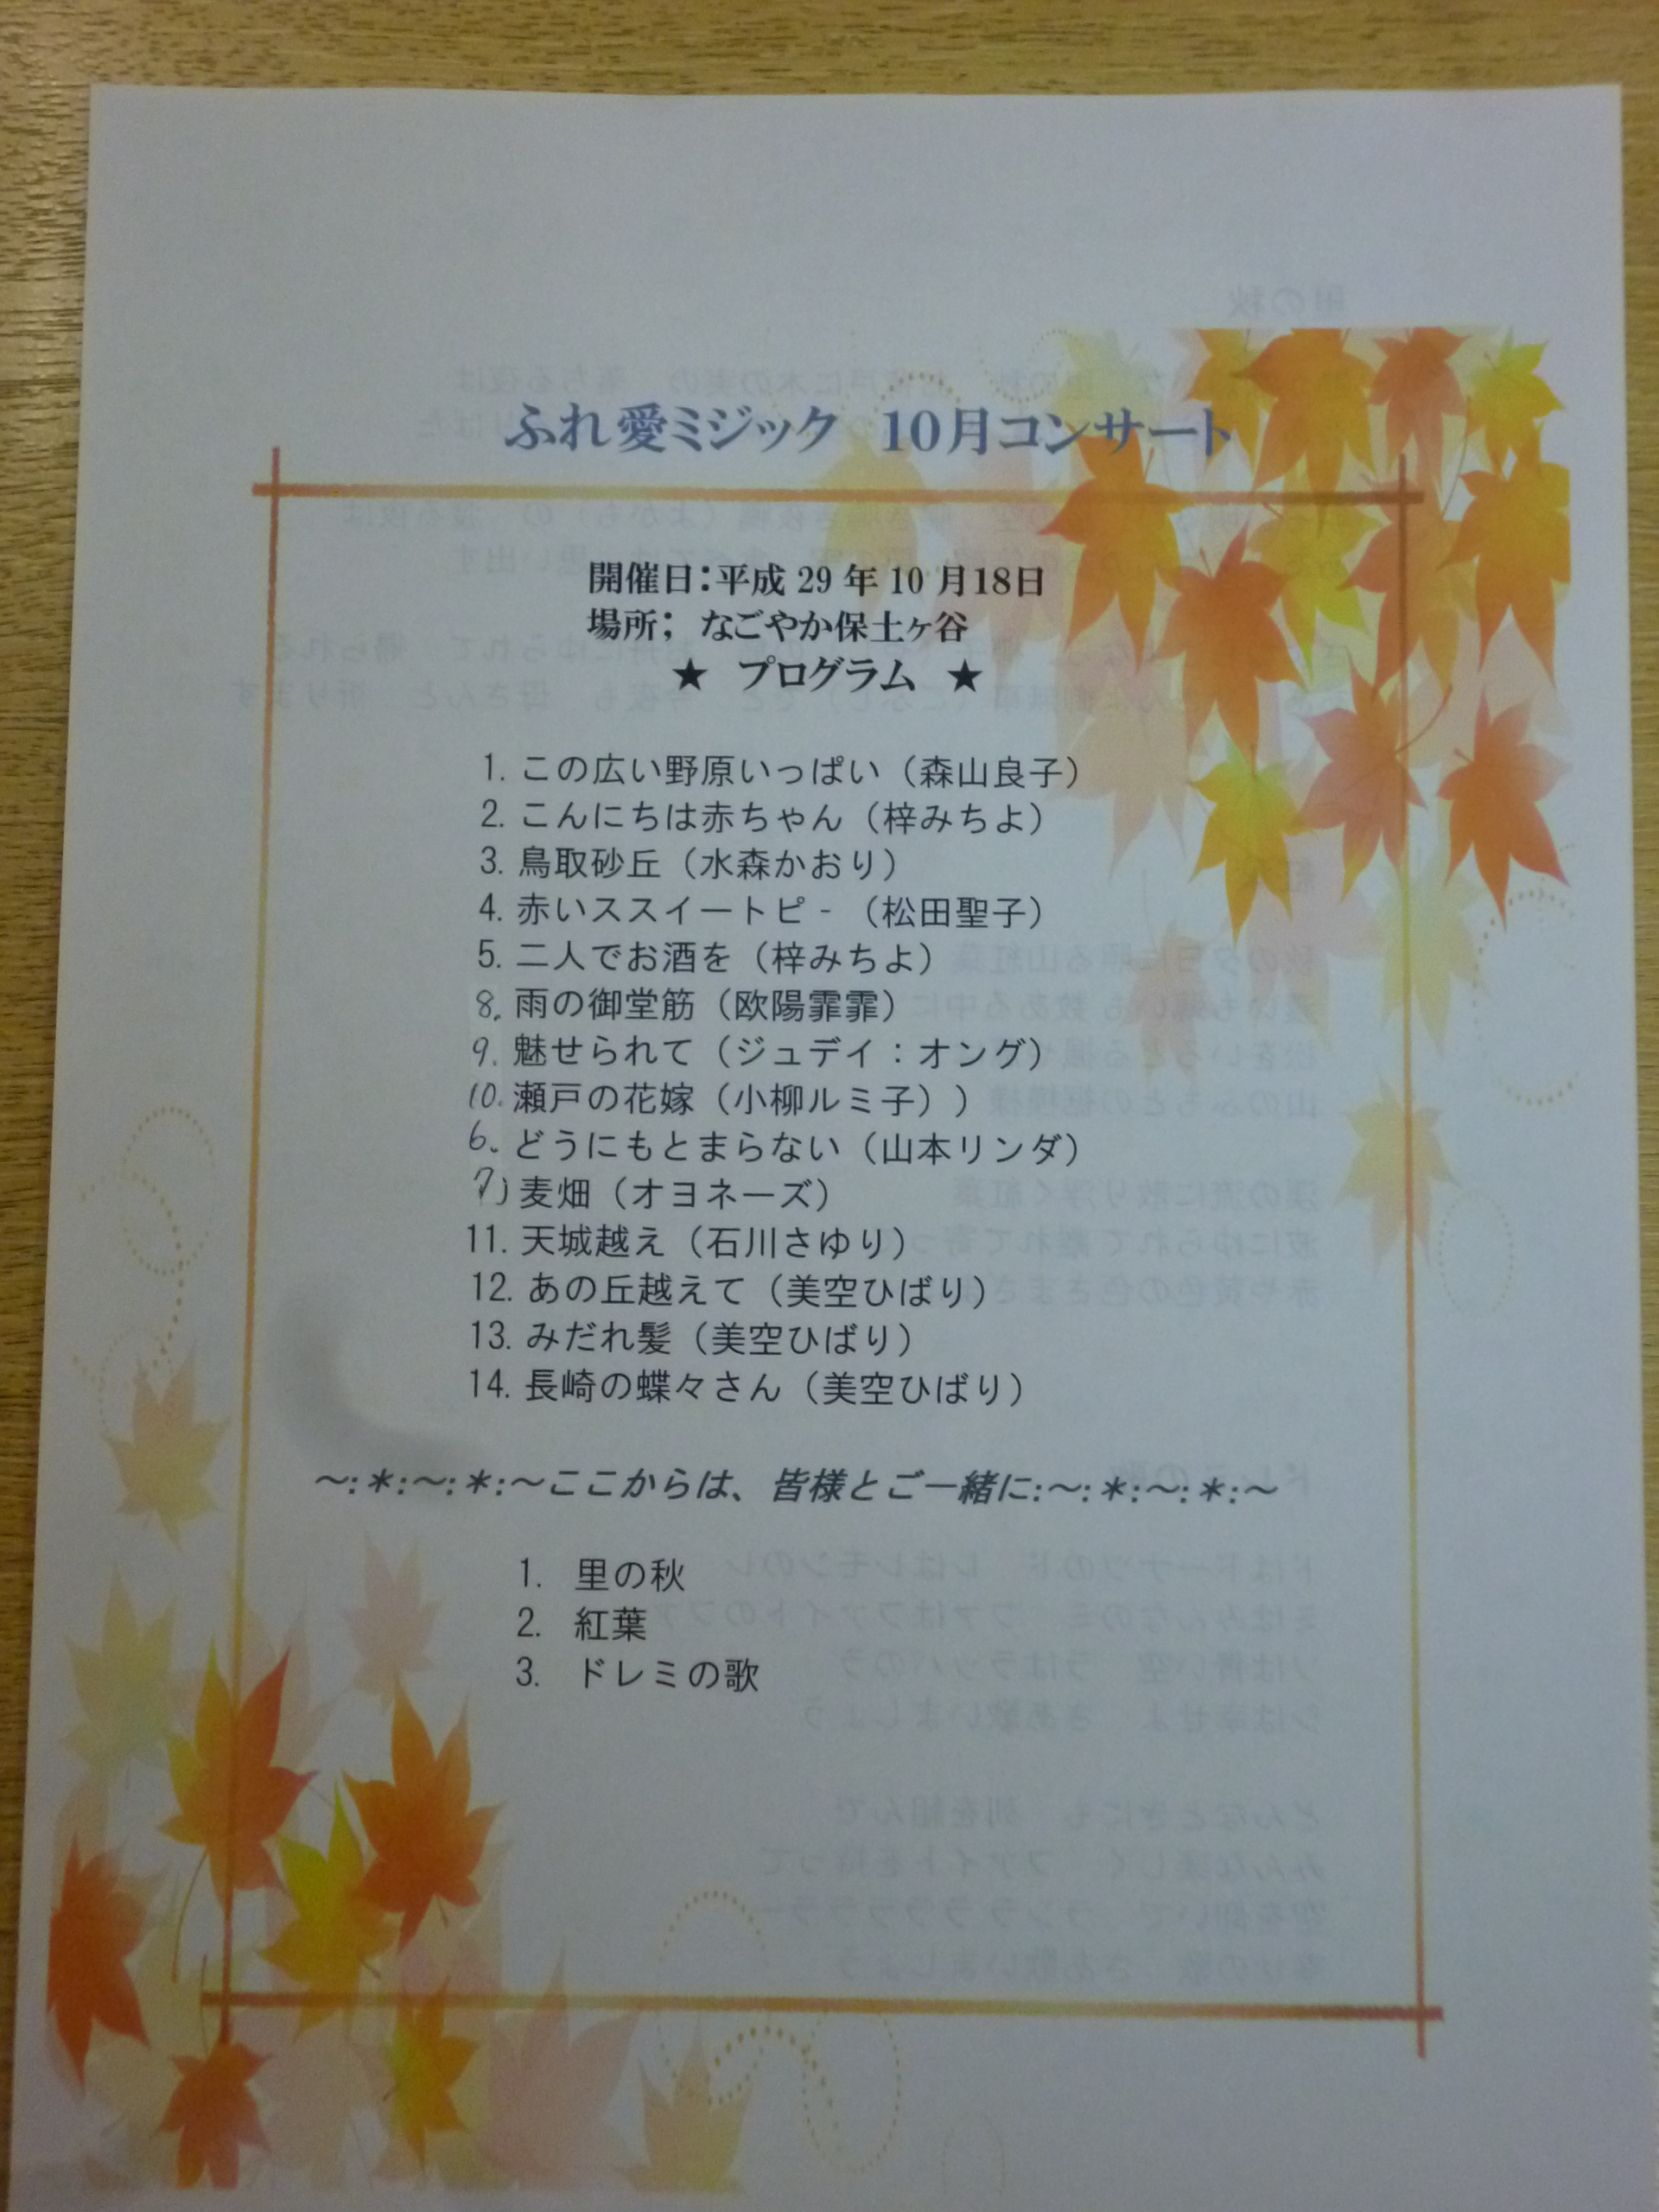 ふれ愛ミジック　10月コンサート
開催日：平成 29 年 10 月18日
場所； なごやか保土ヶ谷
★　プログラム　★
1. この広い野原いっぱい（森山良子）
2. こんにちは赤ちゃん（梓みちよ）
3. 鳥取砂丘（水森かおり）
4. 赤いススイートピ‐（松田聖子）
5. 二人でお酒を（梓みちよ）
8. 雨の御堂筋（欧陽霏霏）
9. 魅せられて（ジュデイ：オング）
10. 瀬戸の花嫁（小柳ルミ子））
6. どうにもとまらない（山本リンダ）
7) 麦畑（オヨネーズ）
11. 天城越え（石川さゆり）
12. あの丘越えて（美空ひばり）
13. みだれ髪（美空ひばり）
14. 長崎の蝶々さん（美空ひばり）
～:＊:～:＊:～ここからは、皆様とご一緒に:～:＊:～:＊:～
1.　里の秋
2.　紅葉
3.　ドレミの歌